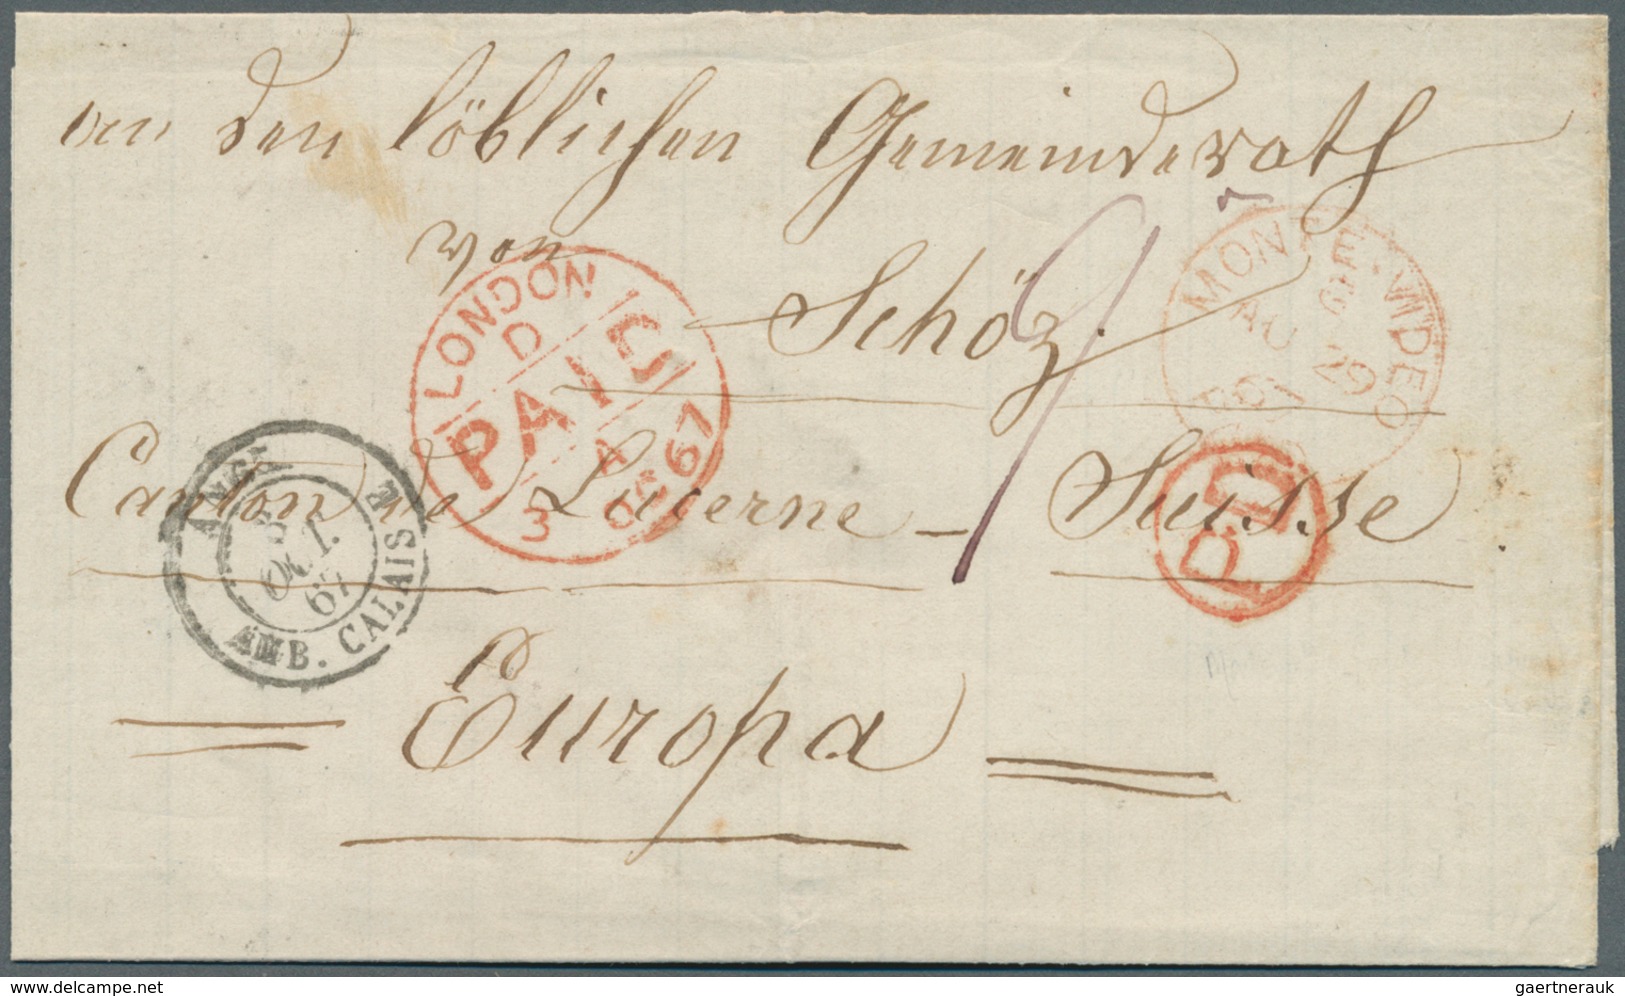 an den löblichen Gemeinderath
von
Schötz.
Canton de Lucerne – Suisse
Europa
LONDON
D
PAID
A
3 OC 67
MONTE-VIDEO
AU 29
67
P.D.
ANGL.
3
OCT.
67
AMB. CALAIS
delcampe.net
gaertnerauk